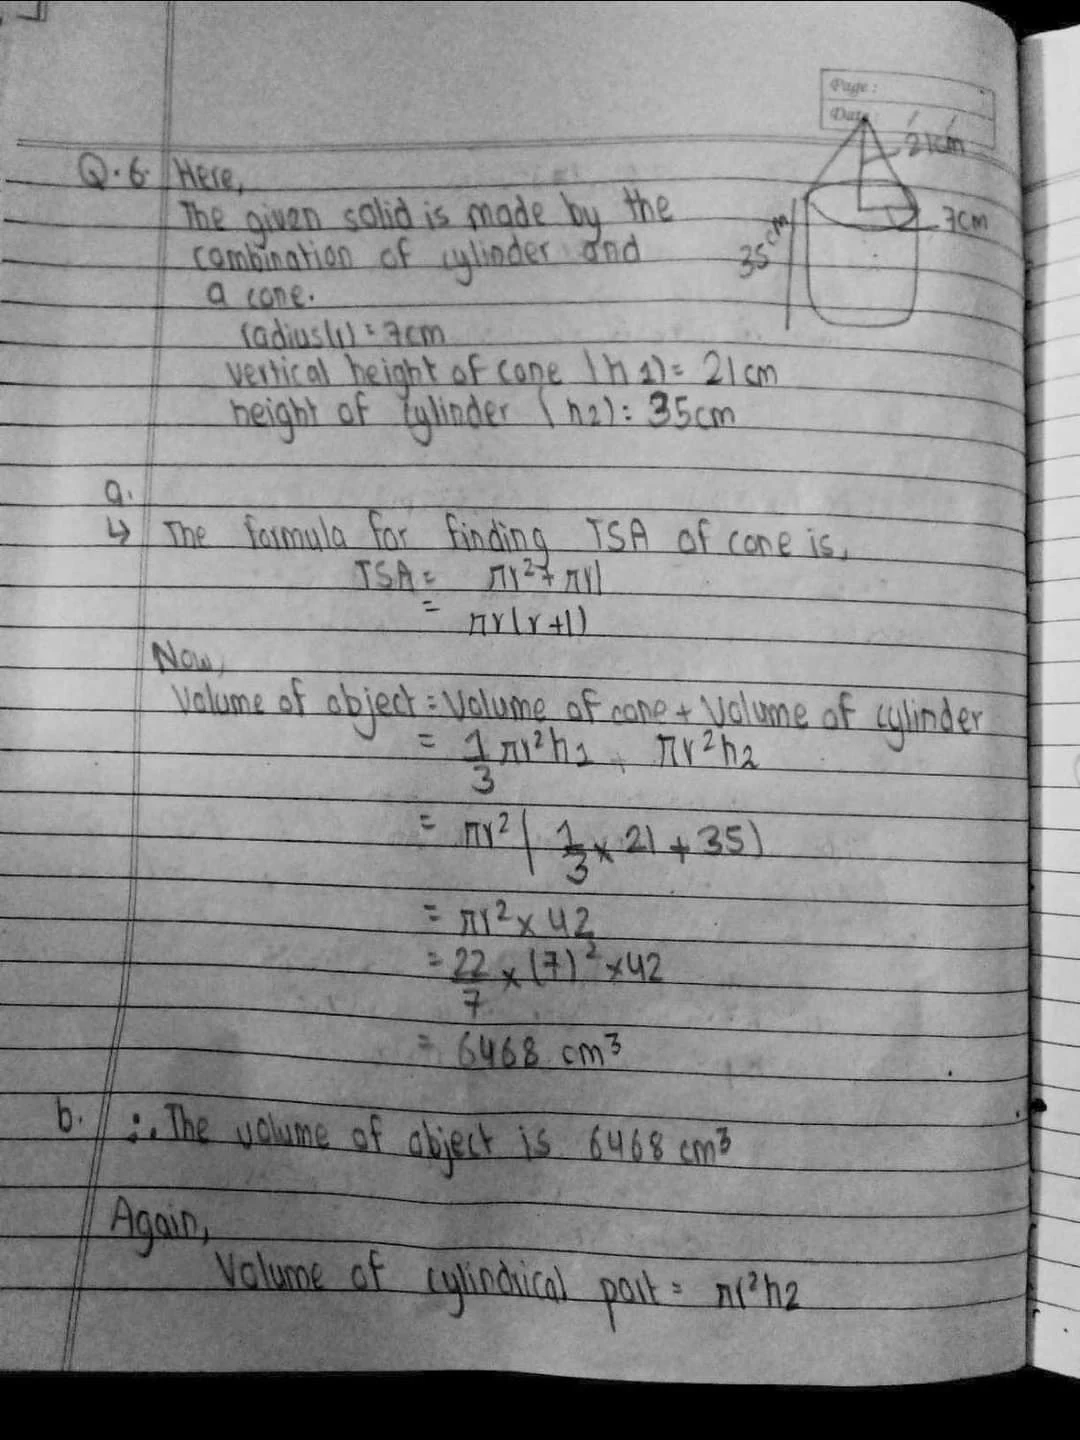 Page :
Date
21cm
7cm
35cm
Q.6. Here,
The given solid is made by the
combination of cylinder and
a cone.
radius(r) = 7cm
vertical height of cone (h1) = 21cm
height of cylinder (h2) = 35cm
a.
↳ The formula for finding TSA of cone is,
TSA = πr²+ πrl
= πr(r+l)
Now,
Volume of object = Volume of cone + Volume of cylinder
= 1/3 πr²h1 + πr²h2
= πr² ( 1/3 × 21 + 35)
= πr² × 42
= 22/7 × (7)² × 42
= 6468 cm³
b. ∴ The volume of object is 6468 cm³
Again,
Volume of cylindrical part = πr²h2